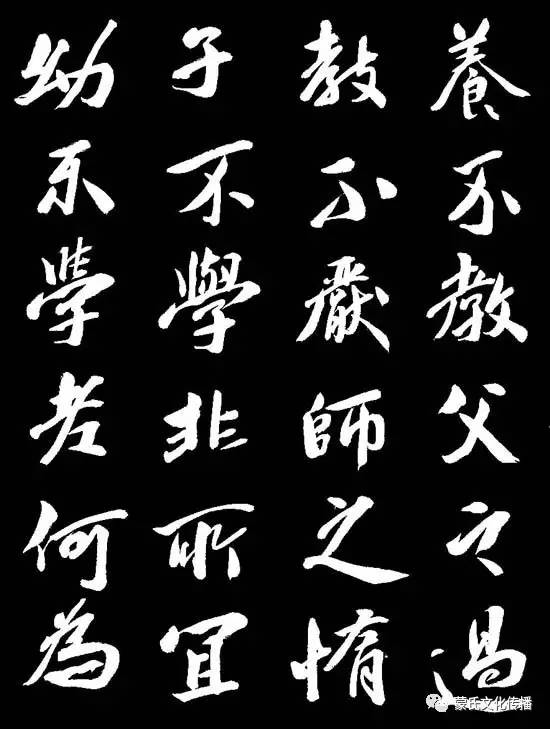 養不教父之過
教不嚴師之惰
子不學非所宜
幼不學老何為
蒙氏文化传播